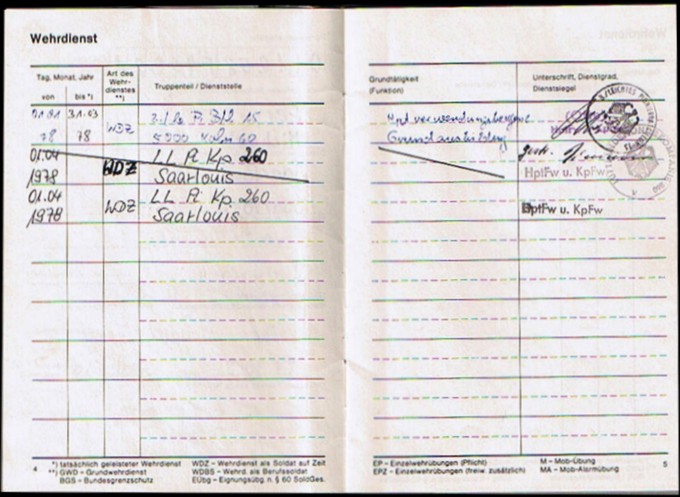 Wehrdienst
Tag, Monat, Jahr
von
bis *)
Art des
Wehr-
dienstes
**)
Truppenteil / Dienststelle
01.01
31.03
78
78
WDZ
15
5000 Köln 60
01.04
1978
WDZ
LL Pi. Kp. 260
Saarlouis
01.04
1978
WDZ
LL Pi. Kp. 260
Saarlouis
4
*) tatsächlich geleisteter Wehrdienst
**) GWD – Grundwehrdienst
BGS – Bundesgrenzschutz
WDZ – Wehrdienst als Soldat auf Zeit
WDBS – Wehrd. als Berufssoldat
EUbg – Eignungsübg. n. § 60 SoldGes.
Grundtätigkeit
(Funktion)
Unterschrift, Dienstgrad,
Dienstsiegel
Grundausbildung
gestr.
HptFw u. KpFw
HptFw u. KpFw
EP – Einzelwehrübungen (Pflicht)
EPZ – Einzelwehrübungen (freiw. zusätzlich)
M – Mob-Übung
MA – Mob-Alarmübung
5